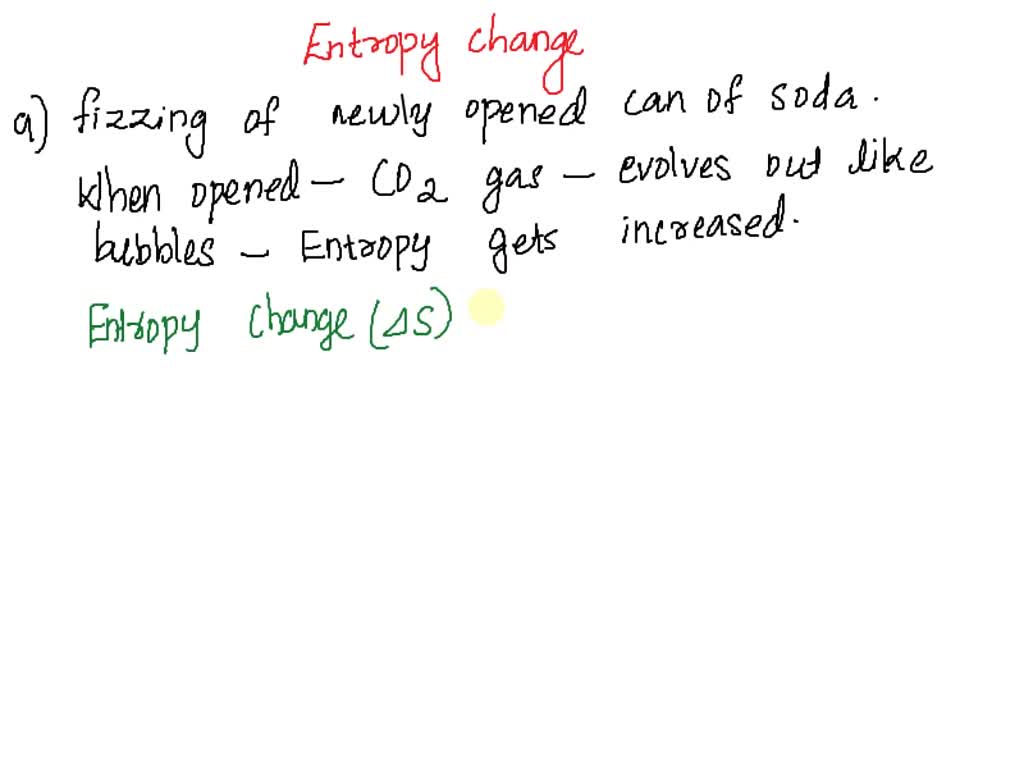 Entropy change
a) fizzing of newly opened can of soda.
When opened - CO2 gas - evolves out like
bubbles - Entropy gets increased.
Entropy change (ΔS)